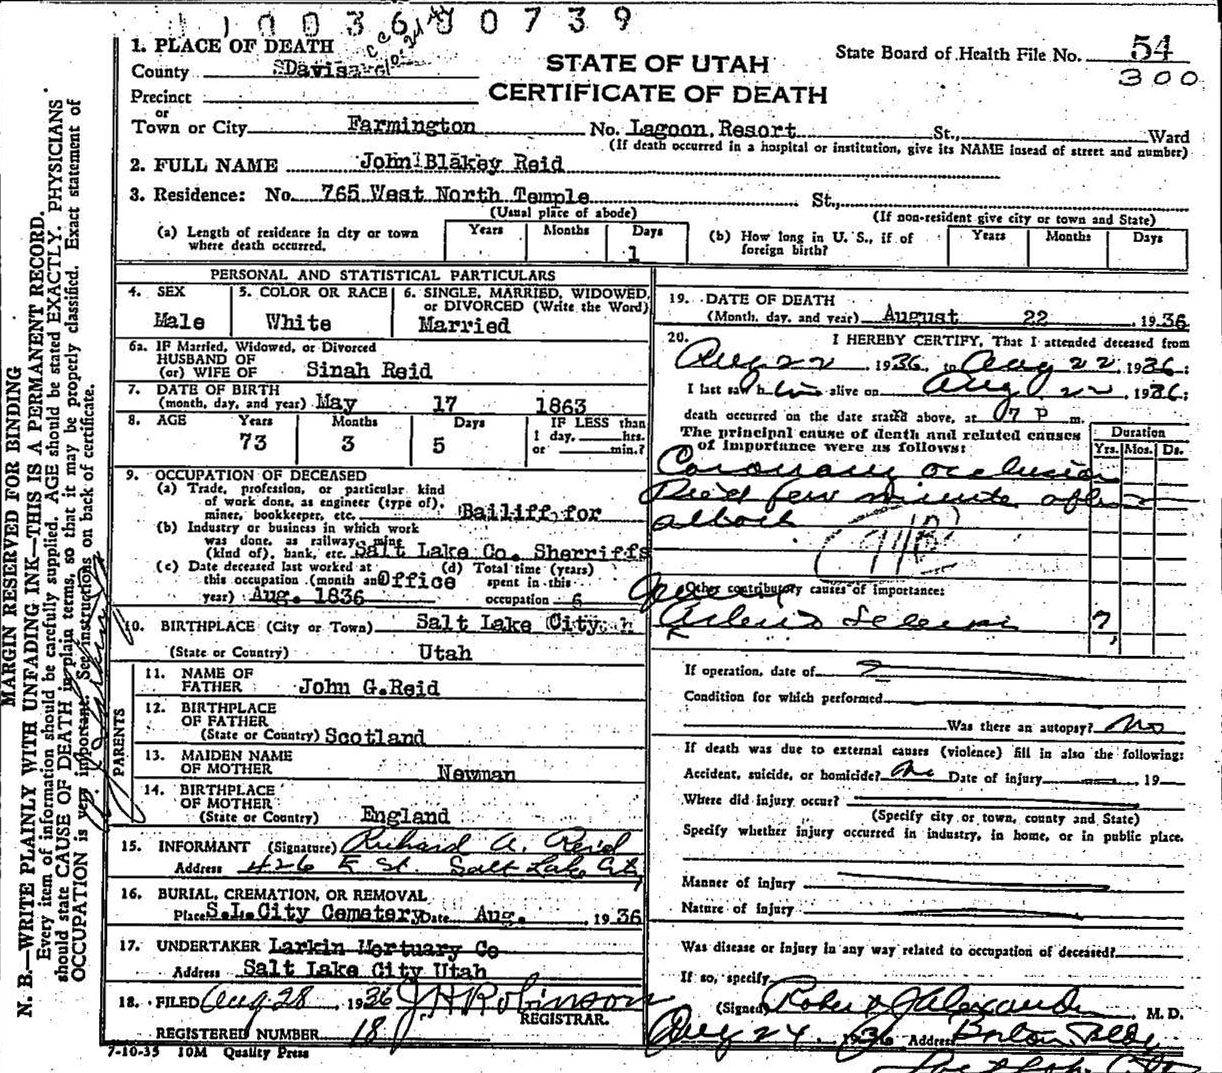 1 1 0 0 3 6 0 0 7 3 9
1. PLACE OF DEATH
County Davis
Precinct
or
Town or City Farmington No. Lagoon Resort St., Ward
(If death occurred in a hospital or institution, give its NAME insead of street and number)
STATE OF UTAH
CERTIFICATE OF DEATH
State Board of Health File No. 54
300
2. FULL NAME John Blakey Reid
3. Residence: No. 765 West North Temple St.,
(Usual place of abode) (If non-resident give city or town and State)
(a) Length of residence in city or town where death occurred. Years Months Days 1
(b) How long in U. S., if of foreign birth? Years Months Days
PERSONAL AND STATISTICAL PARTICULARS
4. SEX Male
5. COLOR OR RACE White
6. SINGLE, MARRIED, WIDOWED, or DIVORCED (Write the Word) Married
6a. IF Married, Widowed, or Divorced
HUSBAND OF
(or) WIFE OF Sinah Reid
7. DATE OF BIRTH
(month, day, and year) May 17 1863
8. AGE Years Months Days IF LESS than
73 3 5 1 day, hrs. or min.?
9. OCCUPATION OF DECEASED
(a) Trade, profession, or particular kind
of work done, as engineer (type of),
miner, bookkeeper, etc. Bailiff for
(b) Industry or business in which work
was done, as railway, mine
(kind of), bank, etc. Salt Lake Co. Sherriffs
(c) Date deceased last worked at (d) Total time (years)
this occupation (month and Office spent in this
year) Aug. 1836 occupation 6
10. BIRTHPLACE (City or Town) Salt Lake City
(State or Country) Utah
PARENTS
11. NAME OF FATHER John G. Reid
12. BIRTHPLACE OF FATHER
(State or Country) Scotland
13. MAIDEN NAME OF MOTHER Newman
14. BIRTHPLACE OF MOTHER
(State or Country) England
15. INFORMANT (Signature) Richard A. Reid
Address 426 E St. Salt Lake City
16. BURIAL, CREMATION, OR REMOVAL
Place S.L. City Cemetery Date Aug. 1936
17. UNDERTAKER Larkin Mortuary Co
Address Salt Lake City Utah
18. FILED Aug 28 1936 J H Robinson
REGISTRAR.
REGISTERED NUMBER 18
7-10-35 10M Quality Press
19. DATE OF DEATH
(Month, day, and year) August 22, 1936
20. I HEREBY CERTIFY, That I attended deceased from
Aug 22 1936, to Aug 22, 1936;
I last saw him alive on Aug 22, 1936;
death occurred on the date stated above, at 07 P m.
The principal cause of death and related causes
of importance were as follows:
Duration
Yrs. Mos. Ds.
Coronary occlusion
Died few minute after
attack
Other contributory causes of importance:
?
If operation, date of
Condition for which performed
Was there an autopsy? No
If death was due to external causes (violence) fill in also the following:
Accident, suicide, or homicide? no Date of injury , 19
Where did injury occur?
(Specify city or town, county and State)
Specify whether injury occurred in industry, in home, or in public place.
Manner of injury
Nature of Injury
Was disease or injury in any way related to occupation of deceased?
If so, specify
(Signed) Robert J Alexander M. D.
Aug 24, 36 Address Boston Bldg
MARGIN RESERVED FOR BINDING
N. B.—WRITE PLAINLY WITH UNFADING INK—THIS IS A PERMANENT RECORD.
Every item of information should be carefully supplied. AGE should be stated EXACTLY. PHYSICIANS
should state CAUSE OF DEATH in plain terms, so that it may be properly classified. Exact statement of
OCCUPATION is very important. See instructions on back of certificate.